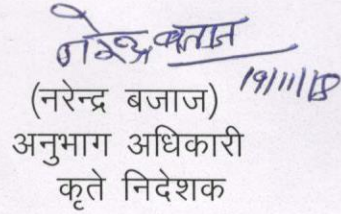 नरेन्द्र बजाज
19/11/18
(नरेन्द्र बजाज)
अनुभाग अधिकारी
कृते निदेशक